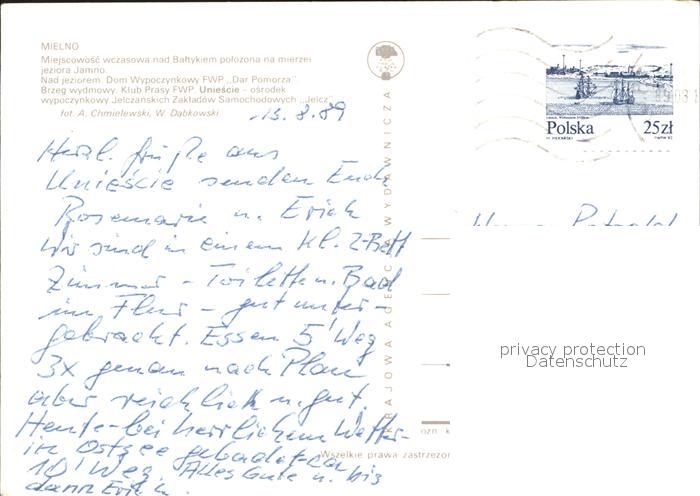 MIELNO
Miejscowość wczasowa nad Bałtykiem położona na mierzei
jeziora Jamno.
Nad jeziorem. Dom Wypoczynkowy FWP „Dar Pomorza”.
Brzeg wydmowy. Klub Prasy FWP. Unieście - ośrodek
wypoczynkowy Jelczańskich Zakładów Samochodowych „Jelcz”
fot. A. Chmielewski, W. Dąbkowski
13.8.89
Herzl. Grüße aus
Unieście senden Euch
Rosemarie u. Erich
Wir sind in einem kl. 2-Bett
Zimmer - Toilette u. Bad
im Flur - gut unter-
gebracht. Essen 5' Weg
3x genau nach Plan
aber reichlich u. gut.
Heute bei herrlichem Wetter
in Ostsee gebadet - ca
10' Weg. Alles Gute u. bis
dann Erich
KRAJOWA AGENCJA WYDAWNICZA
Polska 25zł
Wszelkie prawa zastrzeżon
privacy protection
Datenschutz